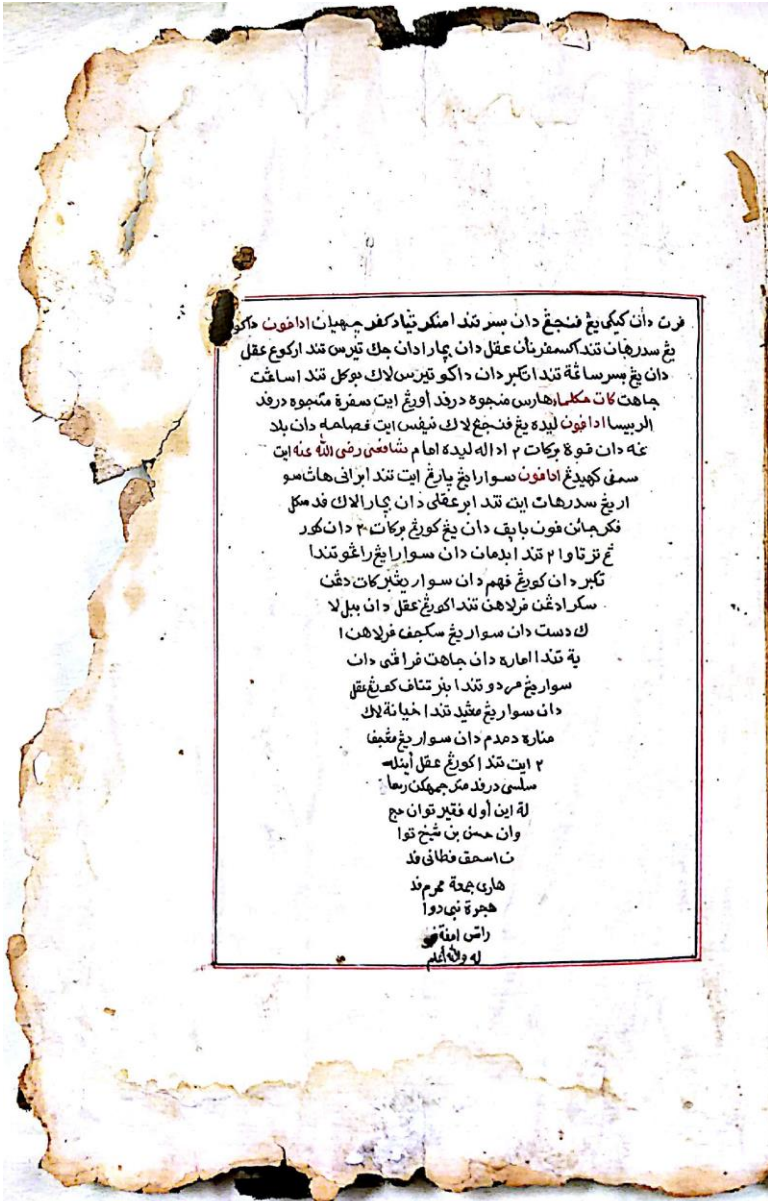 فرت دان کيکي يڠ فنجڠ دان سر تندا منکر تياد کفر چهيان ادافون داکو
يڠ سدرهان تندا کسمفرنأن عقل دان بچارا دان جک تيرس تندا رکوع عقل
دان يڠ بسر ساڠة تندا تکبر دان داکو تيرس لاک بوکل تندا ساڠت
جاهت کات حکلماء هارس منجوه درفد أورڠ ايت سفرة منجوه درفد
الربيسا ادافون ليده يڠ فنجڠ لاک نيفس ايت فصاحه دان بلا
غه دان قوة برکات ٢ اداله ليده امام شافعي رضي الله عنه ايت
سمفي کهيدڠ ادافون سوارا يڠ پارڠ ايت تندا براني هات سو
ارا يڠ سدرهان ايت تندا بر عقلي دان بچارا لاک فد مکل
فکرجائن فون بايق دان يڠ کورڠ برکات ٢ دان کور
ڠ ترتاوا ٢ تندا بدمان دان سوارا يڠ راڠو تندا
تکبر دان کورڠ فهم دان سوار يڠ برکات دڠن
سکرا دڠن فرلاهن تندا کورڠ عقل دان ببل لا
ک دست دان سوار يڠ سکجف فرلاهن ا
ية تندا اماره دان جاهت فراڠي دان
سوار يڠ مردو تندا بنر تتاف کورڠ عقل
دان سوار يڠ مڠيد تندا خيانة لاک
مناره دمدم دان سوار يڠ مڠيف
٢ ايت تندا کورڠ عقل أينله
سلسي درفد منترجمهکن رسا
لة اين أوله فقير توان حج
وان حسن بن شيخ توا
ن اسحق فطاني فد
هاري جمعة محرم فد
هجرة نبي دوا
راتس امنة فو
له والله أعلم